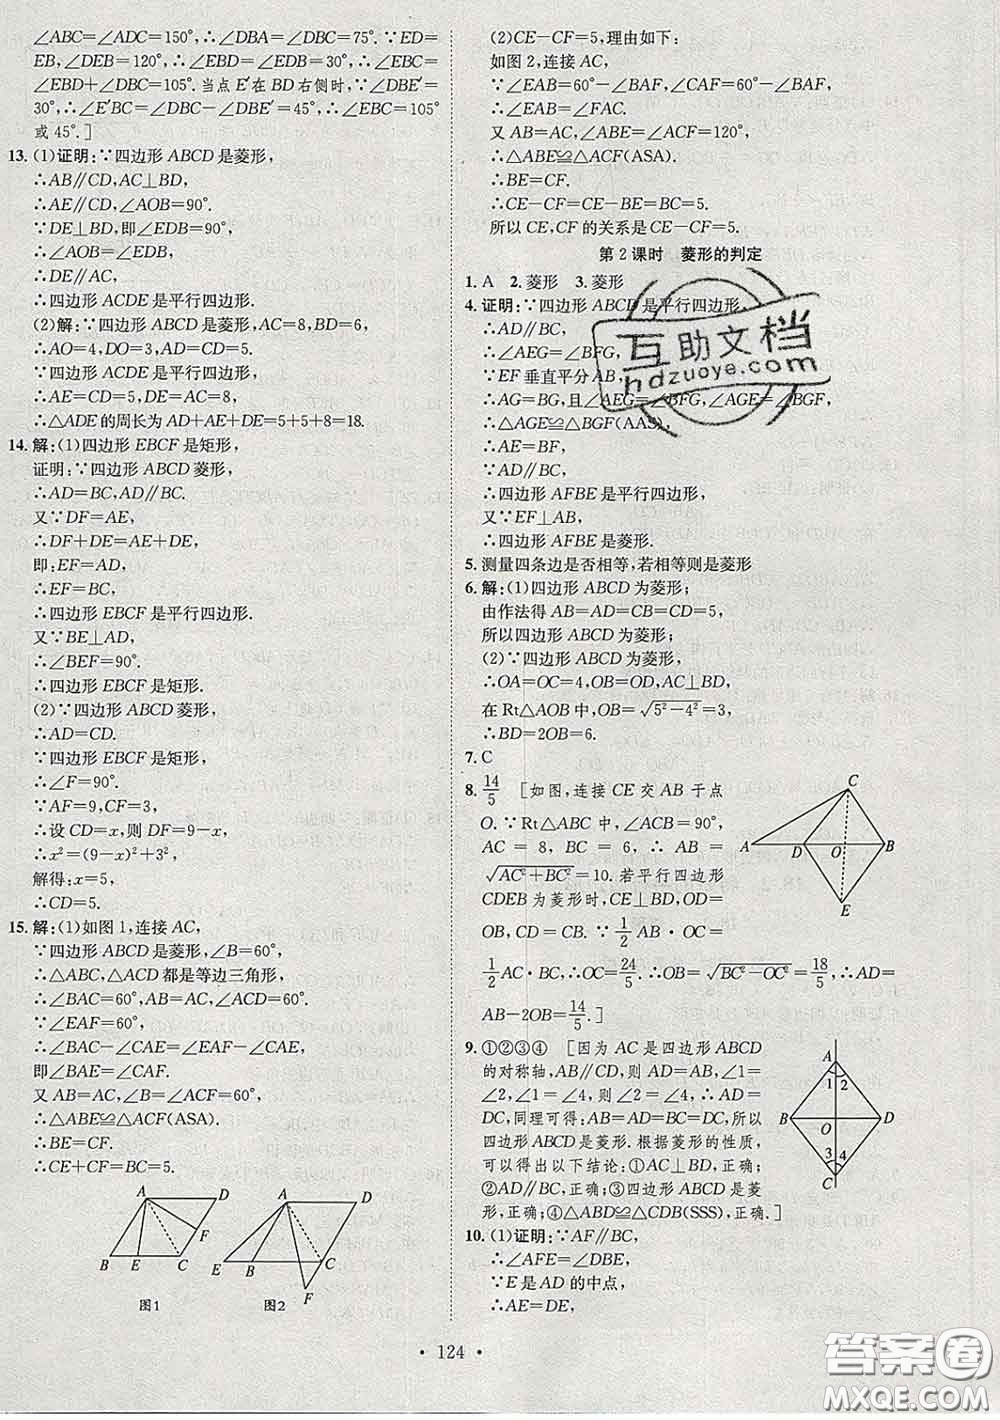 ∠ABC=∠ADC=150°,∴∠DBA=∠DBC=75°.∵ED=
EB,∠DEB=120°,∴∠EBD=∠EDB=30°,∴∠EBC=
∠EBD+∠DBC=105°.当点E′在BD右侧时,∵∠DBE′=
30°,∴∠E′BC=∠DBC-∠DBE′=45°,∴∠EBC=105°
或45°.]
13.(1)证明:∵四边形ABCD是菱形,
∴AB∥CD,AC⊥BD,
∴AE∥CD,∠AOB=90°.
∵DE⊥BD,即∠EDB=90°,
∴∠AOB=∠EDB,
∴DE∥AC,
∴四边形ACDE是平行四边形.
(2)解:∵四边形ABCD是菱形,AC=8,BD=6,
∴AO=4,DO=3,AD=CD=5.
∵四边形ACDE是平行四边形,
∴AE=CD=5,DE=AC=8,
∴△ADE的周长为AD+AE+DE=5+5+8=18.
14.解:(1)四边形EBCF是矩形,
证明:∵四边形ABCD菱形,
∴AD=BC,AD∥BC.
又∵DF=AE,
∴DF+DE=AE+DE,
即:EF=AD,
∴EF=BC,
∴四边形EBCF是平行四边形.
又∵BE⊥AD,
∴∠BEF=90°.
∴四边形EBCF是矩形.
(2)∵四边形ABCD菱形,
∴AD=CD.
∵四边形EBCF是矩形,
∴∠F=90°.
∵AF=9,CF=3,
∴设CD=x,则DF=9-x,
∴x²=(9-x)²+3²,
解得:x=5,
∴CD=5.
15.解:(1)如图1,连接AC,
∵四边形ABCD是菱形,∠B=60°,
∴△ABC,△ACD都是等边三角形,
∴∠BAC=60°,AB=AC,∠ACD=60°.
∵∠EAF=60°,
∴∠BAC-∠CAE=∠EAF-∠CAE,
即∠BAE=∠CAF.
又AB=AC,∠ABC=∠ACF=60°,
∴△ABE≌△ACF(ASA).
∴BE=CF.
∴CE+CF=BC=5.
A D F B E C
图1
A D E B C F
图2
(2)CE-CF=5,理由如下:
如图2,连接AC,
∵∠EAB=60°-∠BAF,∠CAF=60°-∠BAF,
∴∠EAB=∠FAC.
又AB=AC,∠ABE=∠ACF=120°,
∴△ABE≌△ACF(ASA).
∴BE=CF.
∴CE-CF=CE-BE=BC=5.
所以CE,CF的关系是CE-CF=5.
第2课时 菱形的判定
1.A 2.菱形 3.菱形
4.证明:∵四边形ABCD是平行四边形,
∴AD∥BC,
∴∠AEG=∠BFG,
∵EF垂直平分AB,
∴AG=BG,且∠AEG=∠BFG,∠AGE=∠BGF,
∴△AGE≌△BGF(AAS),
∴AE=BF.
∴四边形AFBE是平行四边形,
又∵EF⊥AB,
∴四边形AFBE是菱形.
5.测量四条边是否相等,若相等则是菱形
6.解:(1)四边形ABCD为菱形;
由作法得AB=AD=CB=CD=5,
所以四边形ABCD为菱形;
(2)∵四边形ABCD为菱形,
∴OA=OC=4,OB=OD,AC⊥BD,
在Rt△AOB中,OB=√(5²-4²)=3,
∴BD=2OB=6.
7.C
8. 14/5 [如图,连接CE交AB于点
O.∵Rt△ABC中,∠ACB=90°,
AC=8,BC=6,∴AB=
√(AC²+BC²)=10.若平行四边形
CDEB为菱形时,CE⊥BD,OD=
OB,CD=CB.∵1/2AB·OC=
1/2AC·BC,∴OC=24/5.∴OB=√(BC²-OC²)=18/5,∴AD=
AB-2OB=14/5.]
C A D O B E
9.①②③④ [因为AC是四边形ABCD
的对称轴,AB∥CD,则AD=AB,∠1=
∠2,∠1=∠4,则∠2=∠4,∴AD=
DC,同理可得:AB=AD=BC=DC,所以
四边形ABCD是菱形.根据菱形的性质,
可以得出以下结论:①AC⊥BD,正确;
②AD∥BC,正确;③四边形ABCD是菱
形,正确;④△ABD≌△CDB(SSS),正确.]
A 1 2 B O D 3 4 C
10.(1)证明:∵AF∥BC,
∴∠AFE=∠DBE,
∵E是AD的中点,
∴AE=DE,
· 124 ·
互助文档
hdzuoye.com
答案圈
MXQE.COM